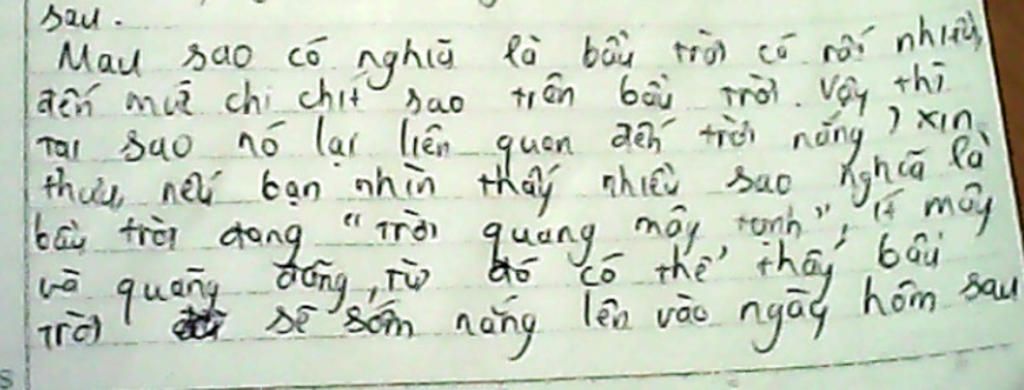 sau.
Mau sao có nghĩa là bầu trời có rất nhiều,
đến mức chi chít sao trên bầu trời. Vậy thì
Tại sao nó lại liên quan đến trời nắng? xin
thưa, nếu bạn nhìn thấy nhiều sao nghĩa là
bầu trời đang "Trời quang mây tạnh", ít mây
và quang đãng, từ đó có thể thấy bầu
Trời sẽ sớm nắng lên vào ngày hôm sau